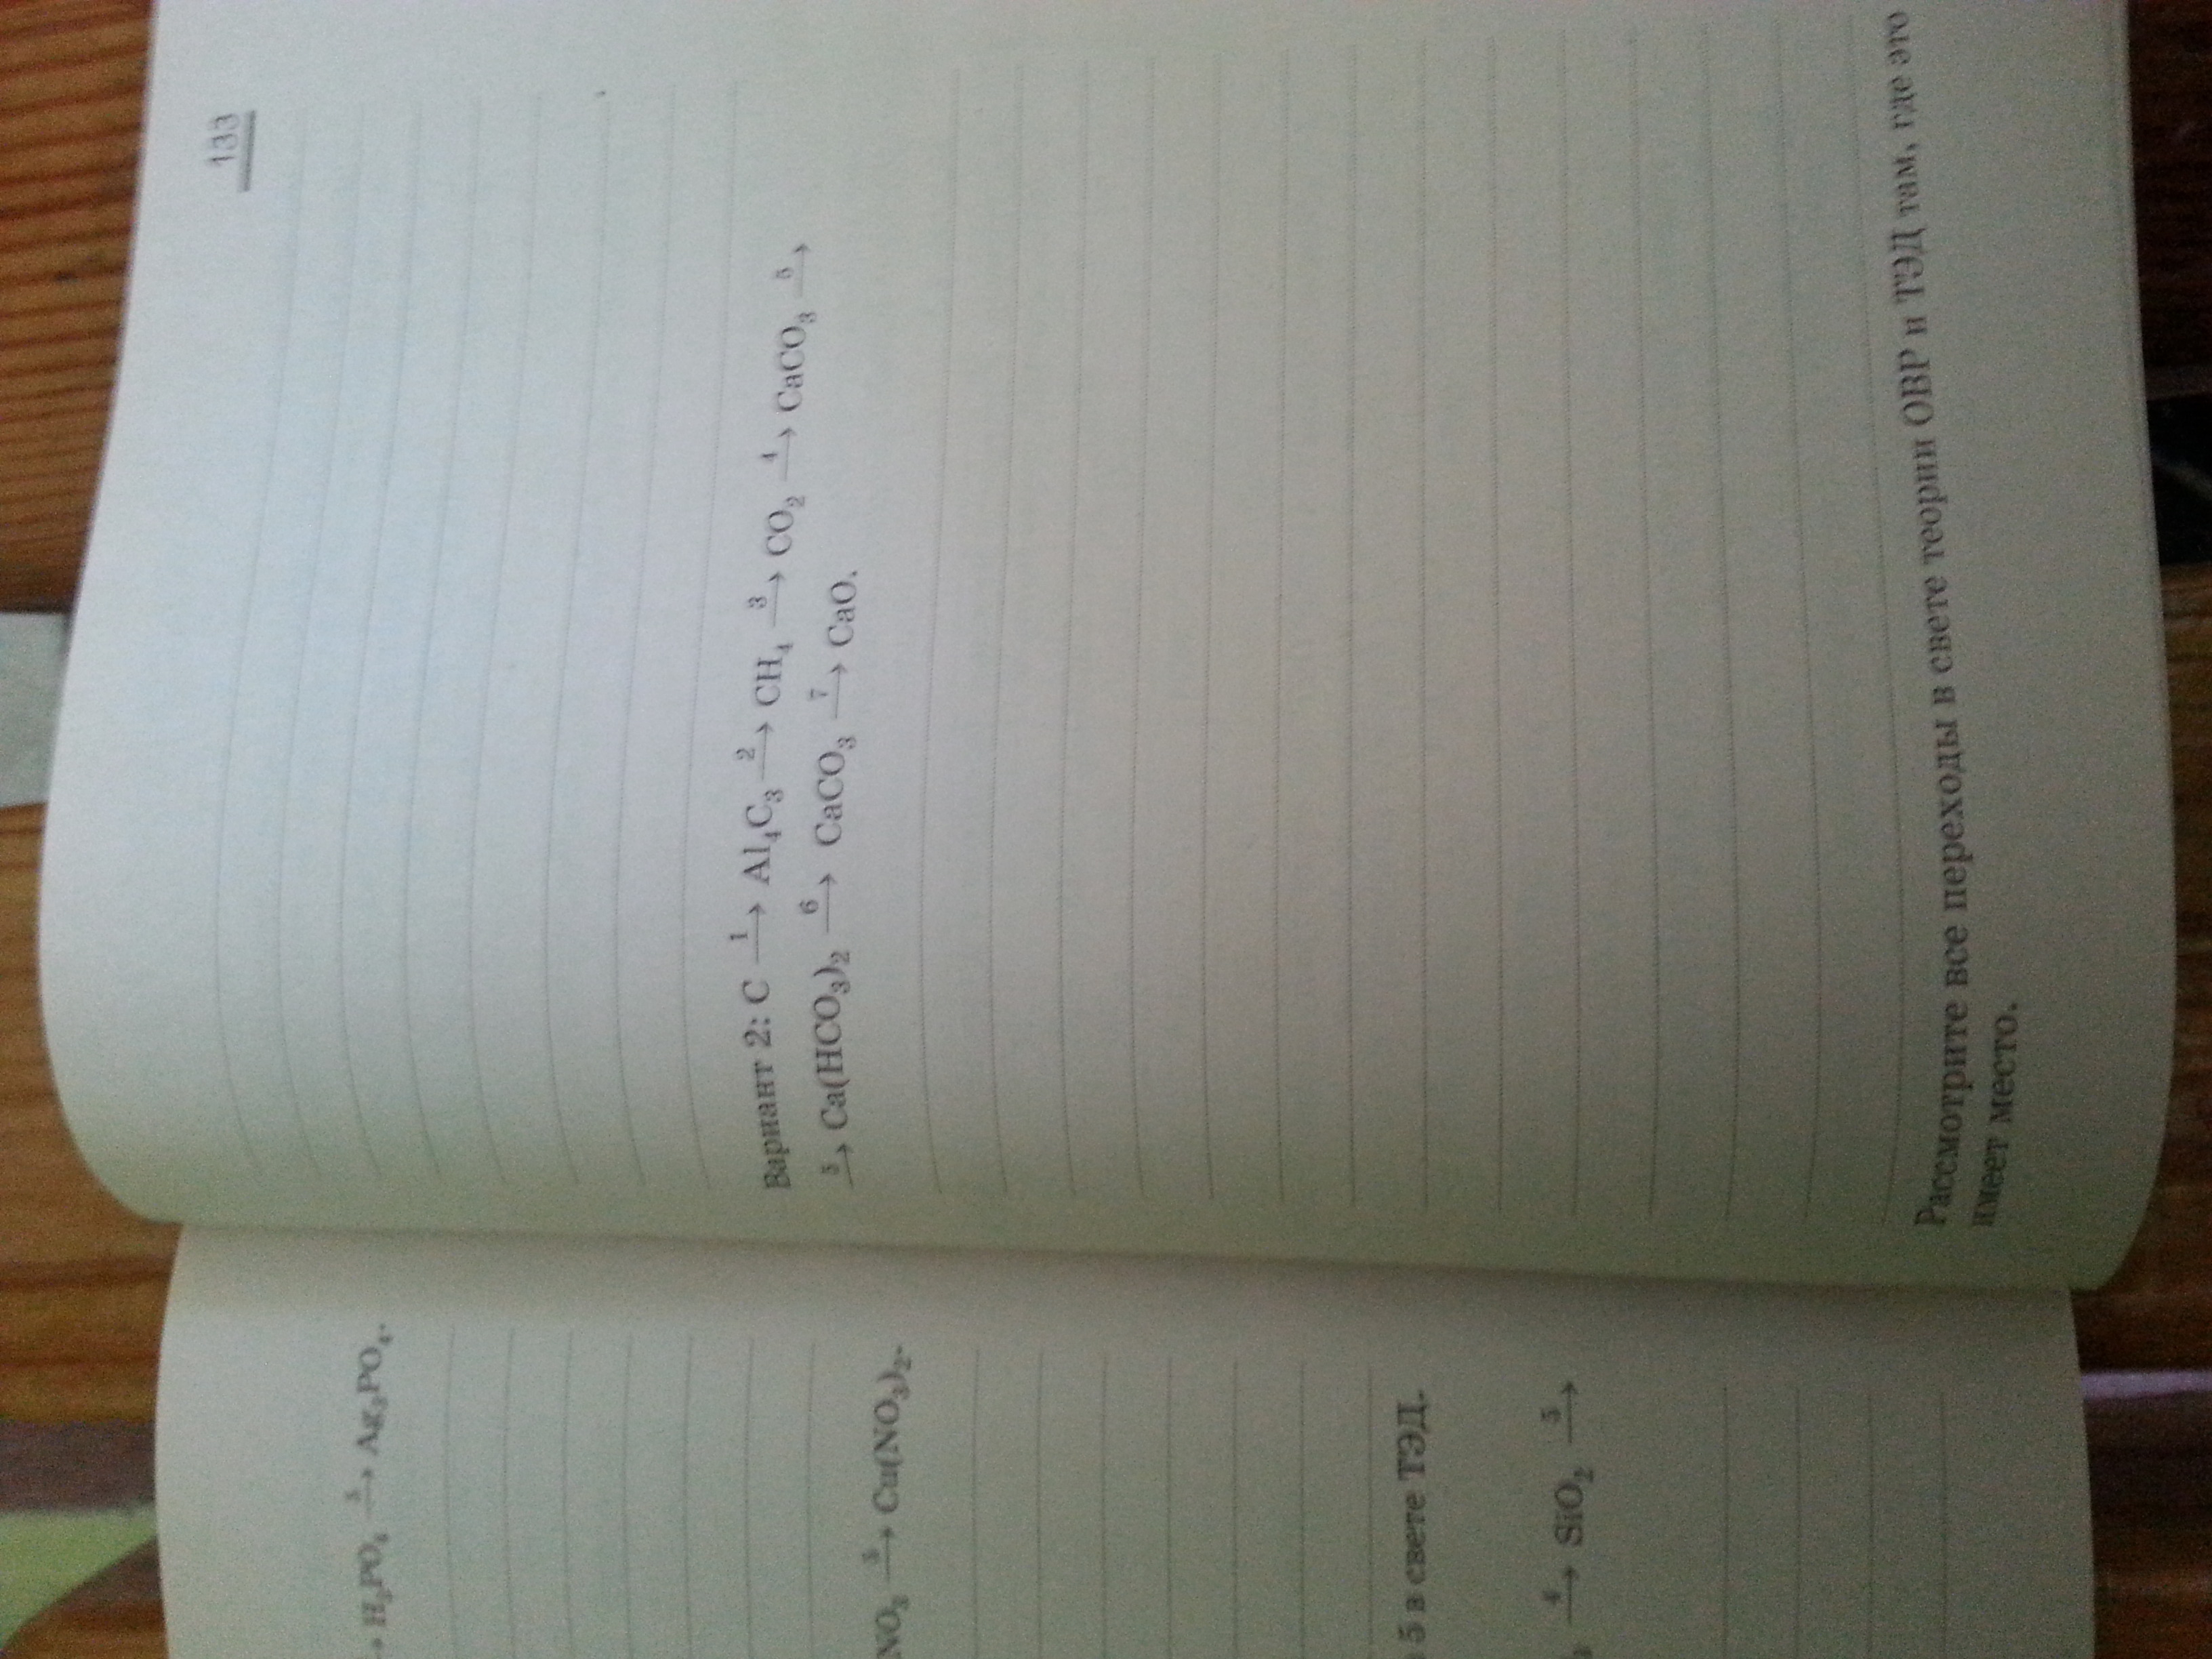 → H₃PO₄ —3→ Ag₃PO₄.
NO�3 —3→ Cu(NO₃)₂.
5 в свете ТЭД.
—4→ SiO₂ —5→
133
Вариант 2: C —1→ Al₄C₃ —2→ CH₄ —3→ CO₂ —4→ CaCO₃ —5→
—5→ Ca(HCO₃)₂ —6→ CaCO₃ —7→ CaO.
Рассмотрите все переходы в свете теории ОВР и ТЭД там, где это
имеет место.